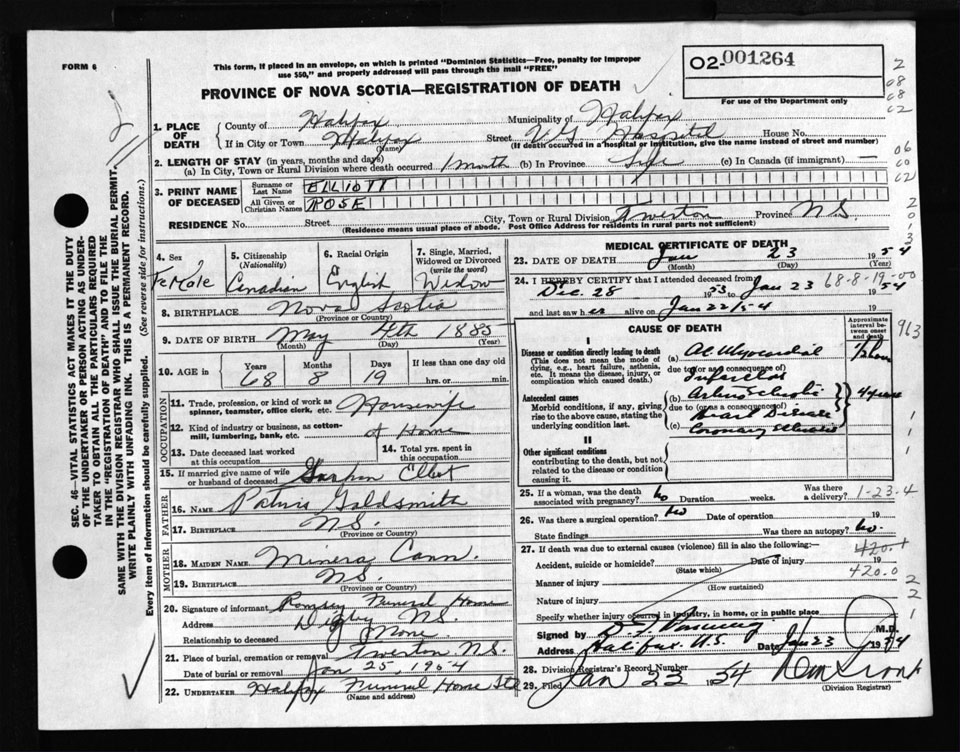 FORM 6
This form, if placed in an envelope, on which is printed "Dominion Statistics—Free, penalty for improper
use $50," and properly addressed will pass through the mail "FREE"
O2-001264
For use of the Department only
PROVINCE OF NOVA SCOTIA—REGISTRATION OF DEATH
2
08
08
02
06
00
02
SEC. 46—VITAL STATISTICS ACT MAKES IT THE DUTY
OF THE UNDERTAKER OR PERSON ACTING AS UNDER-
TAKER TO OBTAIN ALL THE PARTICULARS REQUIRED
IN THE "REGISTRATION OF DEATH" AND TO FILE THE
SAME WITH THE DIVISION REGISTRAR WHO SHALL ISSUE THE BURIAL PERMIT.
WRITE PLAINLY WITH UNFADING INK. THIS IS A PERMANENT RECORD.
Every item of information should be carefully supplied. (See reverse side for instructions.)
1. PLACE OF DEATH
County of Halifax Municipality of Halifax
If in City or Town Halifax Street V.G. Hospital House No.
(Name) (If death occurred in a hospital or institution, give the name instead of street and number)
2. LENGTH OF STAY (in years, months and days)
(a) In City, Town or Rural Division where death occurred 1 month (b) in Province Life (c) in Canada (if immigrant) —
3. PRINT NAME OF DECEASED
Surname or Last Name ELLIOTT
All Given or Christian Names ROSE
RESIDENCE No. Street City, Town or Rural Division Tiverton Province N.S.
(Residence means usual place of abode. Post Office Address for residents in rural parts not sufficient)
4. Sex
Female
5. Citizenship
(Nationality)
Canadian
6. Racial Origin
English
7. Single, Married, Widowed or Divorced
(write the word)
Widow
8. BIRTHPLACE Nova Scotia
(Province or Country)
9. DATE OF BIRTH May 4th 1885
(Month) (Day) (Year)
10. AGE in
Years Months Days If less than one day old
68 8 19 hrs. or min.
OCCUPATION
11. Trade, profession, or kind of work as
spinner, teamster, office clerk, etc. Housewife
12. Kind of industry or business, as cotton-
mill, lumbering, bank, etc. at Home
13. Date deceased last worked
at this occupation
14. Total yrs. spent in
this occupation
15. If married give name of wife
or husband of deceased
FATHER
16. NAME Goldsmith
17. BIRTHPLACE N.S.
(Province or Country)
MOTHER
18. MAIDEN NAME Cann.
19. BIRTHPLACE N.S.
(Province or Country)
20. Signature of informant Ramsey Funeral Home
Address Digby N.S.
Relationship to deceased None
21. Place of burial, cremation or removal Tiverton N.S.
Date of burial or removal Jan 25, 1954
22. UNDERTAKER Halifax Funeral Home Ltd
(Name and address)
MEDICAL CERTIFICATE OF DEATH
23. DATE OF DEATH Jan 23 1954
(Month) (Day) (Year)
24. I HEREBY CERTIFY that I attended deceased from 68-8-19-00
Dec. 28 1953 Jan 23 1954
and last saw her alive on Jan 22/54
CAUSE OF DEATH
Approximate
interval be-
tween onset
and death
963
I
Disease or condition directly leading to death
(This does not mean the mode of
dying, e.g., heart failure, asthenia,
etc. It means the disease, injury, or
complication which caused death.)
(a) Ac Myocardial
due to (or as a consequence of)
Antecedent causes
Morbid conditions, if any, giving
rise to the above cause, stating the
underlying condition last.
(b)
due to (or as a consequence of)
Heart Disease
(c) Coronary
II
Other significant conditions
contributing to the death, but not
related to the disease or condition
causing it.
25. If a woman, was the death
associated with pregnancy? No Duration weeks. Was there
a delivery? 1-23-4
26. Was there a surgical operation? No Date of operation 19
State findings Was there an autopsy? No.
27. If death was due to external causes (violence) fill in also the following:— 420.1
Accident, suicide or homicide? Date of injury 19
(State which) 420.0
Manner of injury
(How sustained)
Nature of injury
Specify whether injury occurred in industry, in home, or in public place
Signed by M.D.
Address Halifax N.S. Date Jan 23 1954
28. Division Registrar's Record Number
29. Filed Jan 23 1954
(Division Registrar)